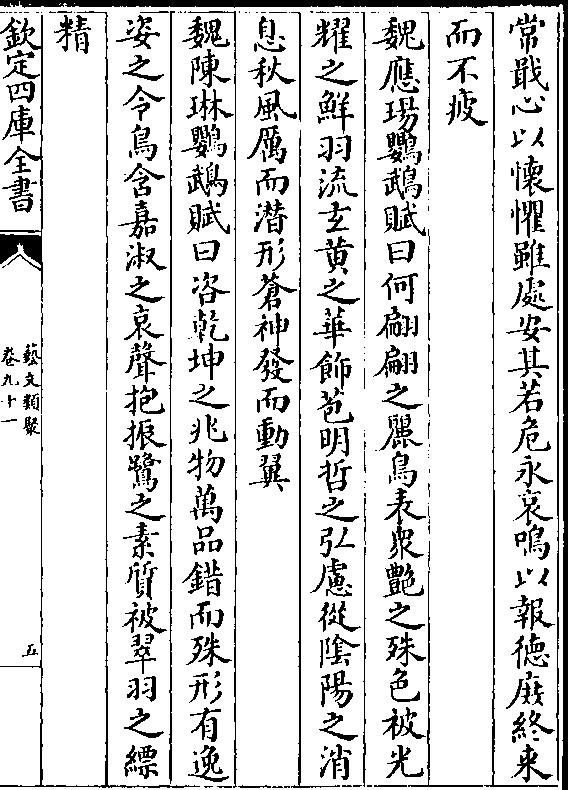 常戢心以懷懼雖處安其若危永哀鳴以報徳庻終来
而不疲
魏應瑒鸚鵡賦曰何翩翩之麗鳥表衆艶之殊色被光
耀之鮮羽流𤣥黄之華飾苞明哲之弘慮從隂陽之消
息秋風厲而潜形蒼神發而動翼
魏陳琳鸚鵡賦曰咨乾坤之兆物萬品錯而殊形有逸
姿之令鳥含嘉淑之哀聲抱振鷺之素質被翠羽之縹
精
欽定四庫全書
藝文類聚
卷九十一
五